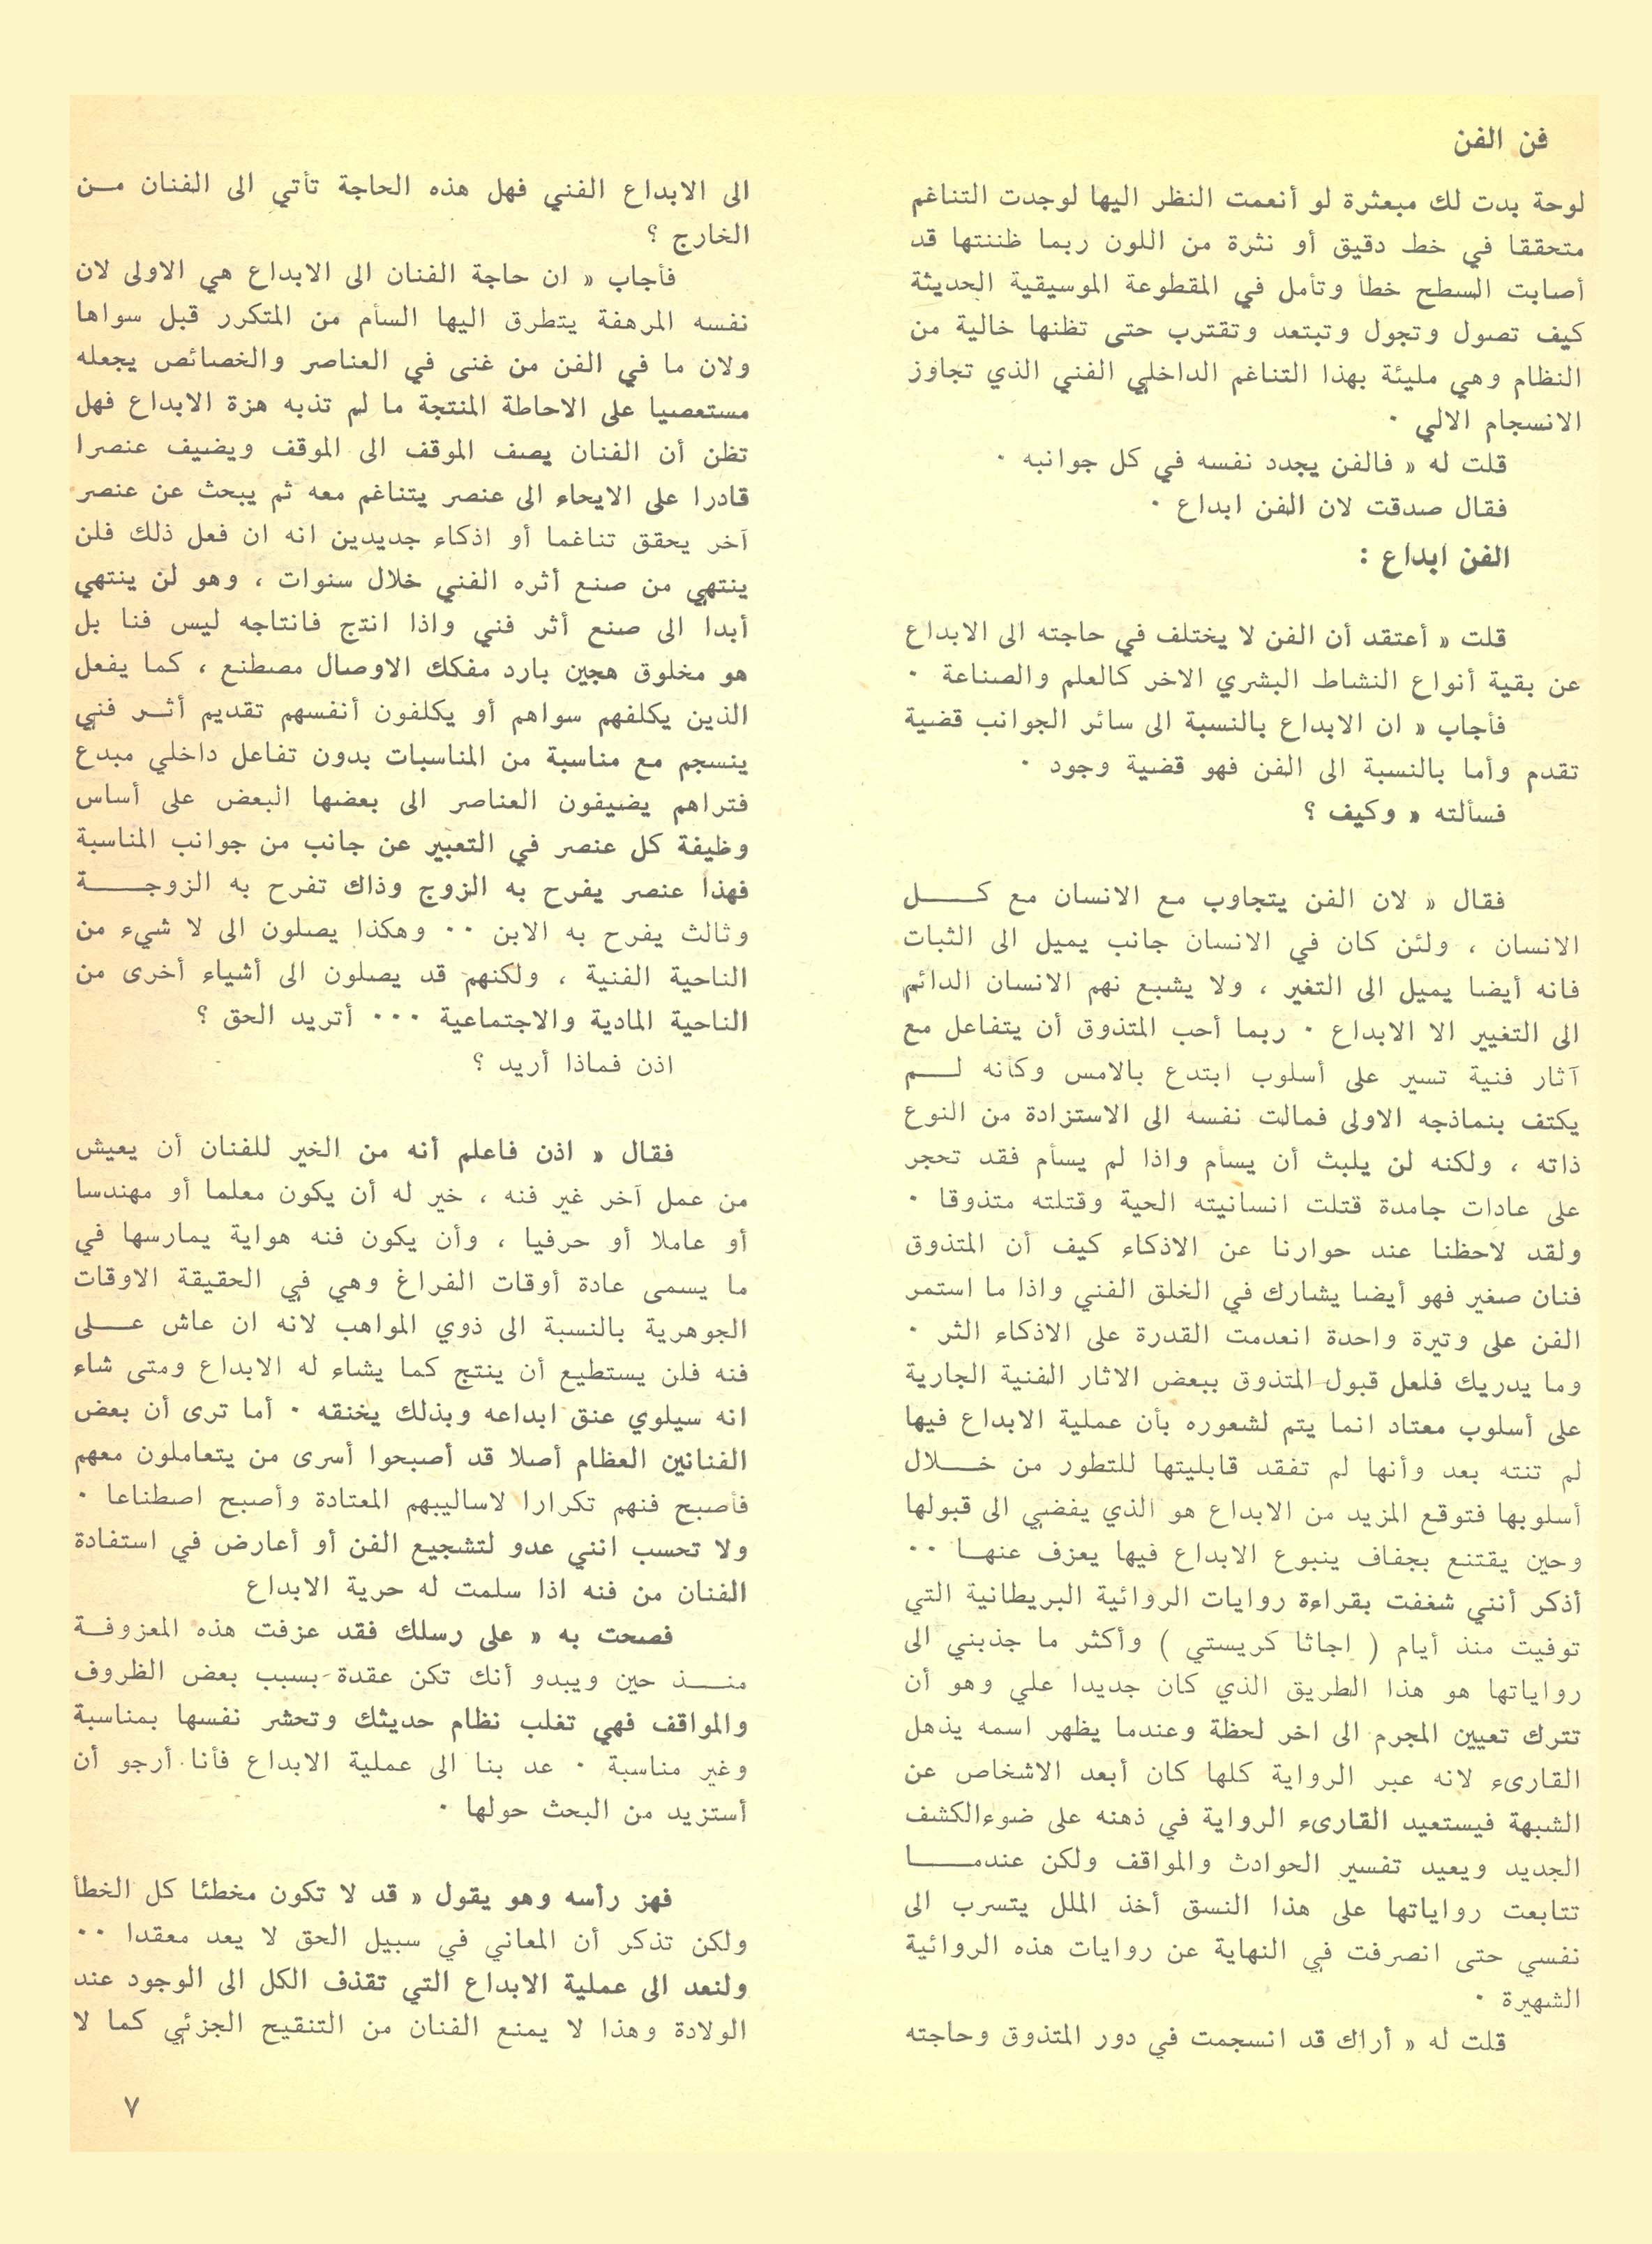 فن الفن
لوحة بدت لك مبعثرة لو أنعمت النظر اليها لوجدت التناغم
متحققا في خط دقيق أو نثرة من اللون ربما ظننتها قد
أصابت السطح خطأ وتأمل في المقطوعة الموسيقية الحديثة
كيف تصول وتجول وتبتعد وتقترب حتى تظنها خالية من
النظام وهي مليئة بهذا التناغم الداخلي الفني الذي تجاوز
الانسجام الالي ٠
قلت له « فالفن يجدد نفسه في كل جوانبه ٠
فقال صدقت لان الفن ابداع ٠
الفن ابداع :
قلت « أعتقد أن الفن لا يختلف في حاجته الى الابداع
عن بقية أنواع النشاط البشري الاخر كالعلم والصناعة ٠
فأجاب « ان الابداع بالنسبة الى سائر الجوانب قضية
تقدم وأما بالنسبة الى الفن فهو قضية وجود ٠
فسألته « وكيف ؟
فقال « لان الفن يتجاوب مع الانسان مع كــــل
الانسان ، ولئن كان في الانسان جانب يميل الى الثبات
فانه أيضا يميل الى التغير ، ولا يشبع نهم الانسان الدائم
الى التغيير الا الابداع ٠ ربما أحب المتذوق أن يتفاعل مع
آثار فنية تسير على أسلوب ابتدع بالامس وكأنه لـــم
يكتف بنماذجه الاولى فمالت نفسه الى الاستزادة من النوع
ذاته ، ولكنه لن يلبث أن يسأم واذا لم يسأم فقد تحجر
على عادات جامدة قتلت انسانيته الحية وقتلته متذوقا ٠
ولقد لاحظنا عند حوارنا عن الاذكاء كيف أن المتذوق
فنان صغير فهو أيضا يشارك في الخلق الفني واذا ما استمر
الفن على وتيرة واحدة انعدمت القدرة على الاذكاء الثر ٠
وما يدريك فلعل قبول المتذوق ببعض الاثار الفنية الجارية
على أسلوب معتاد انما يتم لشعوره بأن عملية الابداع فيها
لم تنته بعد وأنها لم تفقد قابليتها للتطور من خـــلال
أسلوبها فتوقع المزيد من الابداع هو الذي يفضي الى قبولها
وحين يقتنع بجفاف ينبوع الابداع فيها يعزف عنهــا ٠٠
أذكر أنني شغفت بقراءة روايات الروائية البريطانية التي
توفيت منذ أيام ( اجاثا كريستي ) وأكثر ما جذبني الى
رواياتها هو هذا الطريق الذي كان جديدا علي وهو أن
تترك تعيين المجرم الى اخر لحظة وعندما يظهر اسمه يذهل
القارىء لانه عبر الرواية كلها كان أبعد الاشخاص عن
الشبهة فيستعيد القارىء الرواية في ذهنه على ضوءالكشف
الجديد ويعيد تفسير الحوادث والمواقف ولكن عندمــــا
تتابعت رواياتها على هذا النسق أخذ الملل يتسرب الى
نفسي حتى انصرفت في النهاية عن روايات هذه الروائية
الشهيرة ٠
قلت له « أراك قد انسجمت في دور المتذوق وحاجته
الى الابداع الفني فهل هذه الحاجة تأتي الى الفنان مــن
الخارج ؟
فأجاب « ان حاجة الفنان الى الابداع هي الاولى لان
نفسه المرهفة يتطرق اليها السأم من المتكرر قبل سواها
ولان ما في الفن من غنى في العناصر والخصائص يجعله
مستعصيا على الاحاطة المنتجة ما لم تذبه هزة الابداع فهل
تظن أن الفنان يصف الموقف الى الموقف ويضيف عنصرا
قادرا على الايحاء الى عنصر يتناغم معه ثم يبحث عن عنصر
آخر يحقق تناغما أو اذكاء جديدين انه ان فعل ذلك فلن
ينتهي من صنع أثره الفني خلال سنوات ، وهو لن ينتهي
أبدا الى صنع أثر فني واذا انتج فانتاجه ليس فنا بل
هو مخلوق هجين بارد مفكك الاوصال مصطنع ، كما يفعل
الذين يكلفهم سواهم أو يكلفون أنفسهم تقديم أثــر فني
ينسجم مع مناسبة من المناسبات بدون تفاعل داخلي مبدع
فتراهم يضيفون العناصر الى بعضها البعض على أساس
وظيفة كل عنصر في التعبير عن جانب من جوانب المناسبة
فهذا عنصر يفرح به الزوج وذاك تفرح به الزوجـــــة
وثالث يفرح به الابن ٠٠ وهكذا يصلون الى لا شيء من
الناحية الفنية ، ولكنهم قد يصلون الى أشياء أخرى من
الناحية المادية والاجتماعية ٠٠٠ أتريد الحق ؟
اذن فماذا أريد ؟
فقال « اذن فاعلم أنه من الخير للفنان أن يعيش
من عمل آخر غير فنه ، خير له أن يكون معلما أو مهندسا
أو عاملا أو حرفيا ، وأن يكون فنه هواية يمارسها في
ما يسمى عادة أوقات الفراغ وهي في الحقيقة الاوقات
الجوهرية بالنسبة الى ذوي المواهب لانه ان عاش عـــلى
فنه فلن يستطيع أن ينتج كما يشاء له الابداع ومتى شاء
انه سيلوي عنق ابداعه وبذلك يخنقه ٠ أما ترى أن بعض
الفنانين العظام أصلا قد أصبحوا أسرى من يتعاملون معهم
فأصبح فنهم تكرارا لاساليبهم المعتادة وأصبح اصطناعا ٠
ولا تحسب انني عدو لتشجيع الفن أو أعارض في استفادة
الفنان من فنه اذا سلمت له حرية الابداع
فصحت به « على رسلك فقد عزفت هذه المعزوفــة
منــــذ حين ويبدو أنك تكن عقدة بسبب بعض الظروف
والمواقف فهي تغلب نظام حديثك وتحشر نفسها بمناسبة
وغير مناسبة ٠ عد بنا الى عملية الابداع فأنا أرجو أن
أستزيد من البحث حولها ٠
فهز رأسه وهو يقول « قد لا تكون مخطئا كل الخطأ
ولكن تذكر أن المعاني في سبيل الحق لا يعد معقدا ٠٠
ولنعد الى عملية الابداع التي تقذف الكل الى الوجود عند
الولادة وهذا لا يمنع الفنان من التنقيح الجزئي كما لا
٧